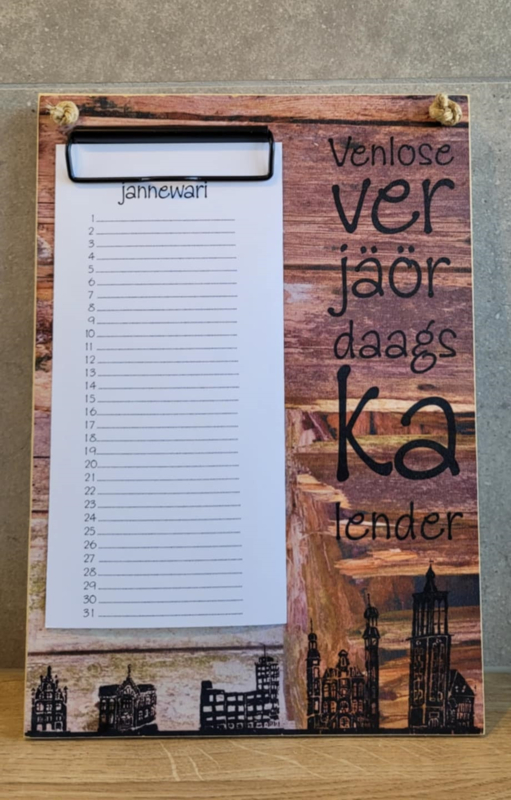 jannewari
1
2
3
4
5
6
7
8
9
10
11
12
13
14
15
16
17
18
19
20
21
22
23
24
25
26
27
28
29
30
31
Venlose
ver
jäör
daags
ka
lender